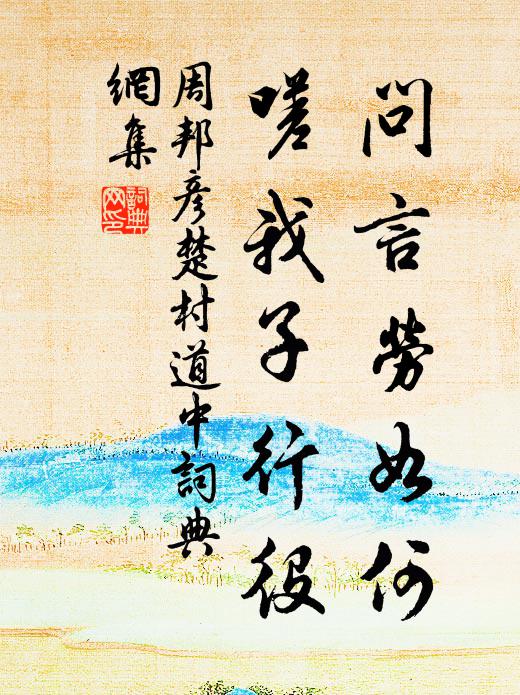 問言勞如何
嗟我子行役
周邦彦楚村道中詞典
網集
詞典網印